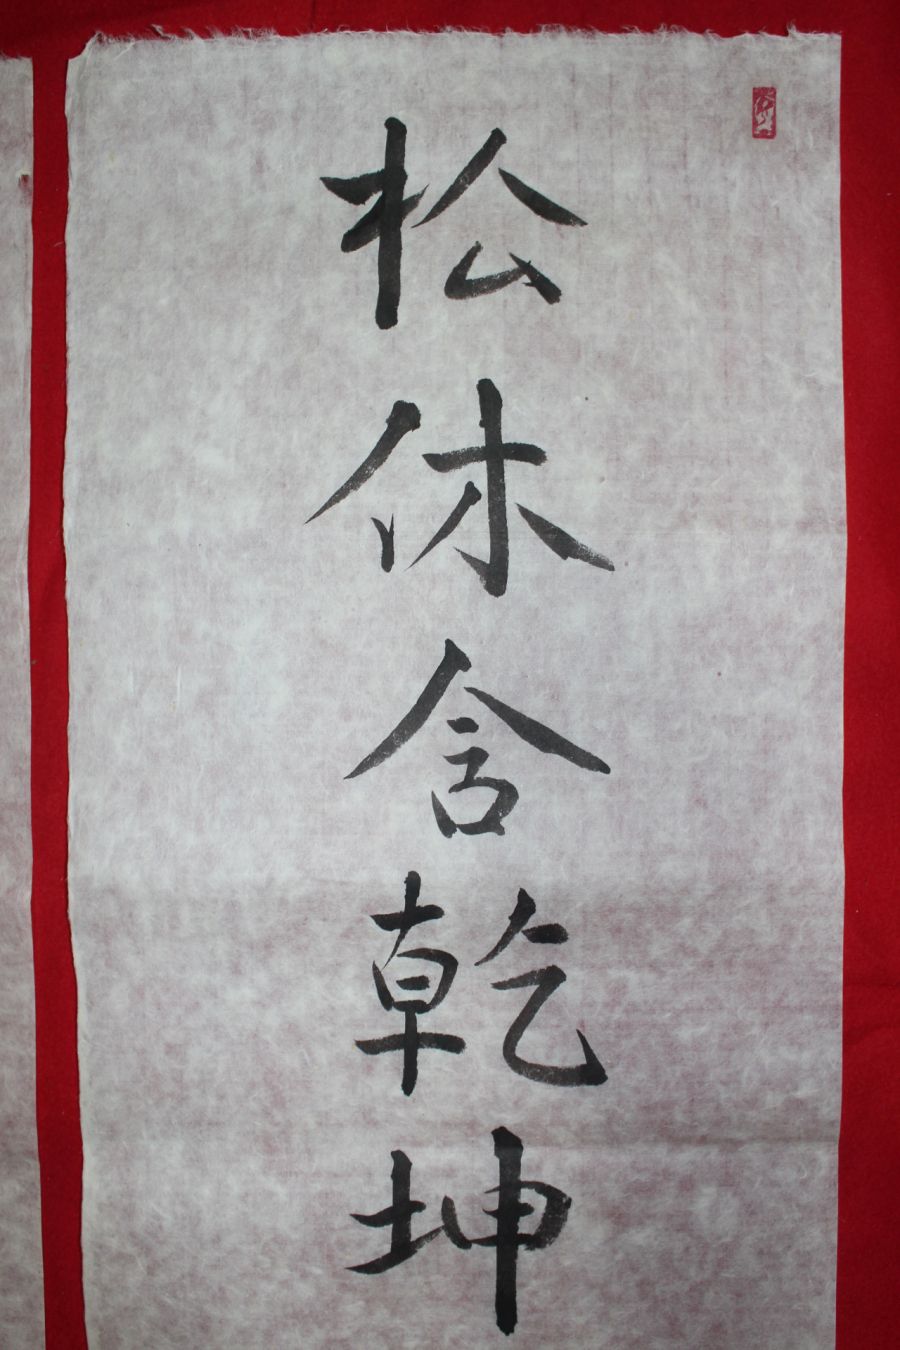 松休含乾坤